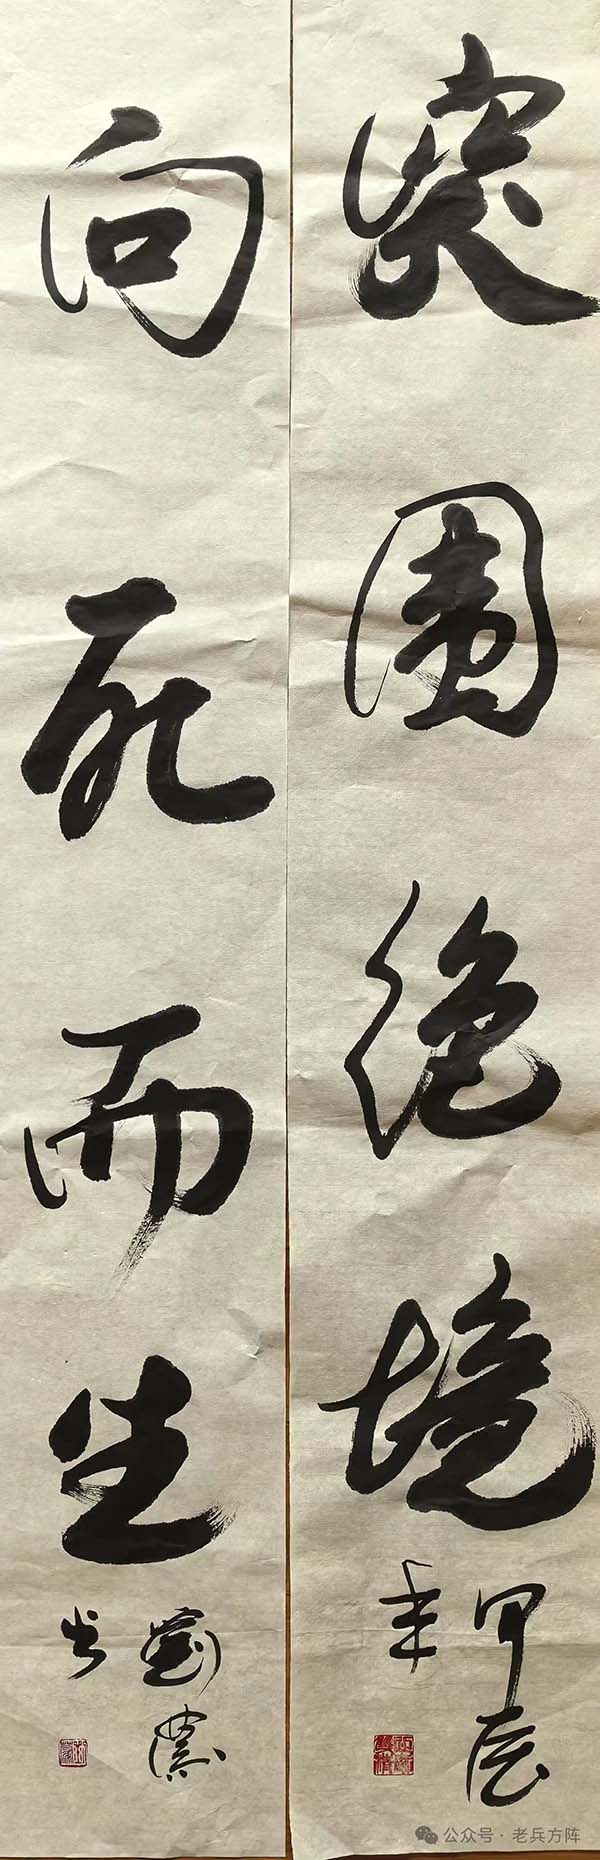 突围绝境
甲辰
年
向死而生
劉
书
公众号·老兵方阵